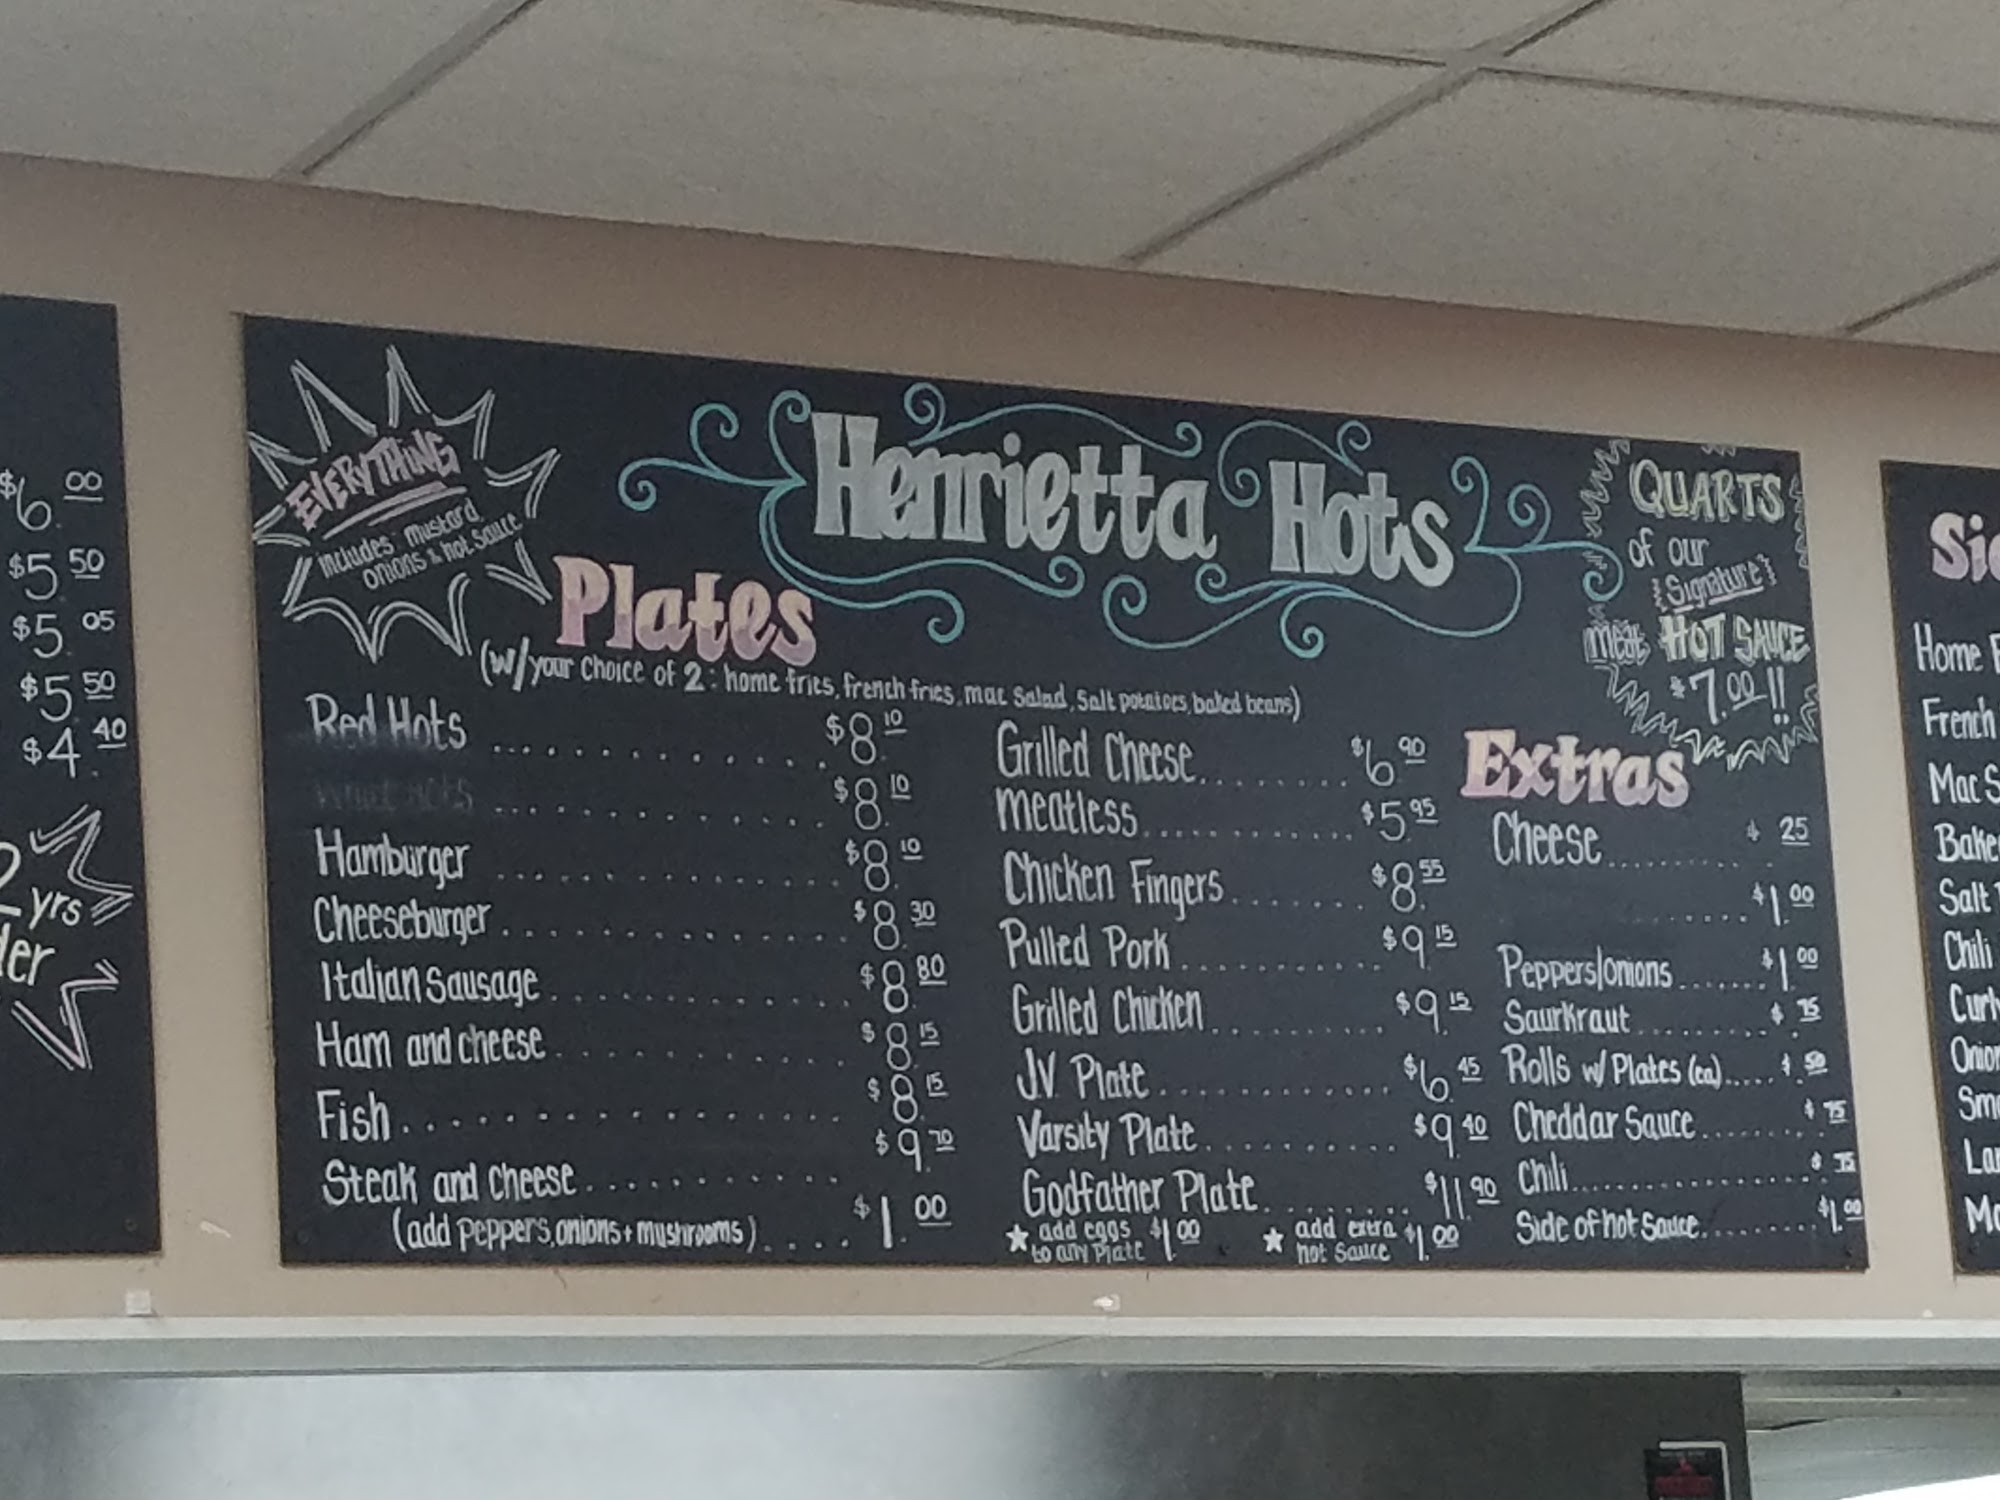 $6.00
$5.50
$5.05
$5.50
$4.40
yrs
EVERYTHING
includes: mustard
onions & hot sauce
Henrietta Hots
QUARTS
of our
Signature
meat HOT SAUCE
$7.00!!
Plates
(w/your choice of 2: home fries, french fries, mac Salad, Salt potatoes, baked beans)
Red Hots ............ $8.10
White Hots ............ $8.10
Hamburger ............ $8.10
Cheeseburger ............ $8.30
Italian Sausage ............ $8.80
Ham and cheese ............ $8.15
Fish ............ $8.15
Steak and cheese ............ $9.70
(add peppers, onions + mushrooms) .... $1.00
Grilled Cheese ........ $6.90
Meatless ............ $5.95
Chicken Fingers ....... $8.55
Pulled Pork ........... $9.15
Grilled Chicken .......... $9.15
J.V. Plate ............ $6.45
Varsity Plate .......... $9.40
Godfather Plate ........ $11.90
★ add eggs to any Plate $1.00
★ add extra hot Sauce $1.00
Extras
Cheese ......... $.25
...... $1.00
Peppers/onions ...... $1.00
Saurkraut ......... $.75
Rolls w/ Plates (ea) ..... $.50
Cheddar Sauce ....... $.75
Chili ................ $.75
Side of hot Sauce ........ $1.00
Home
French
Mac
Salt
Chili